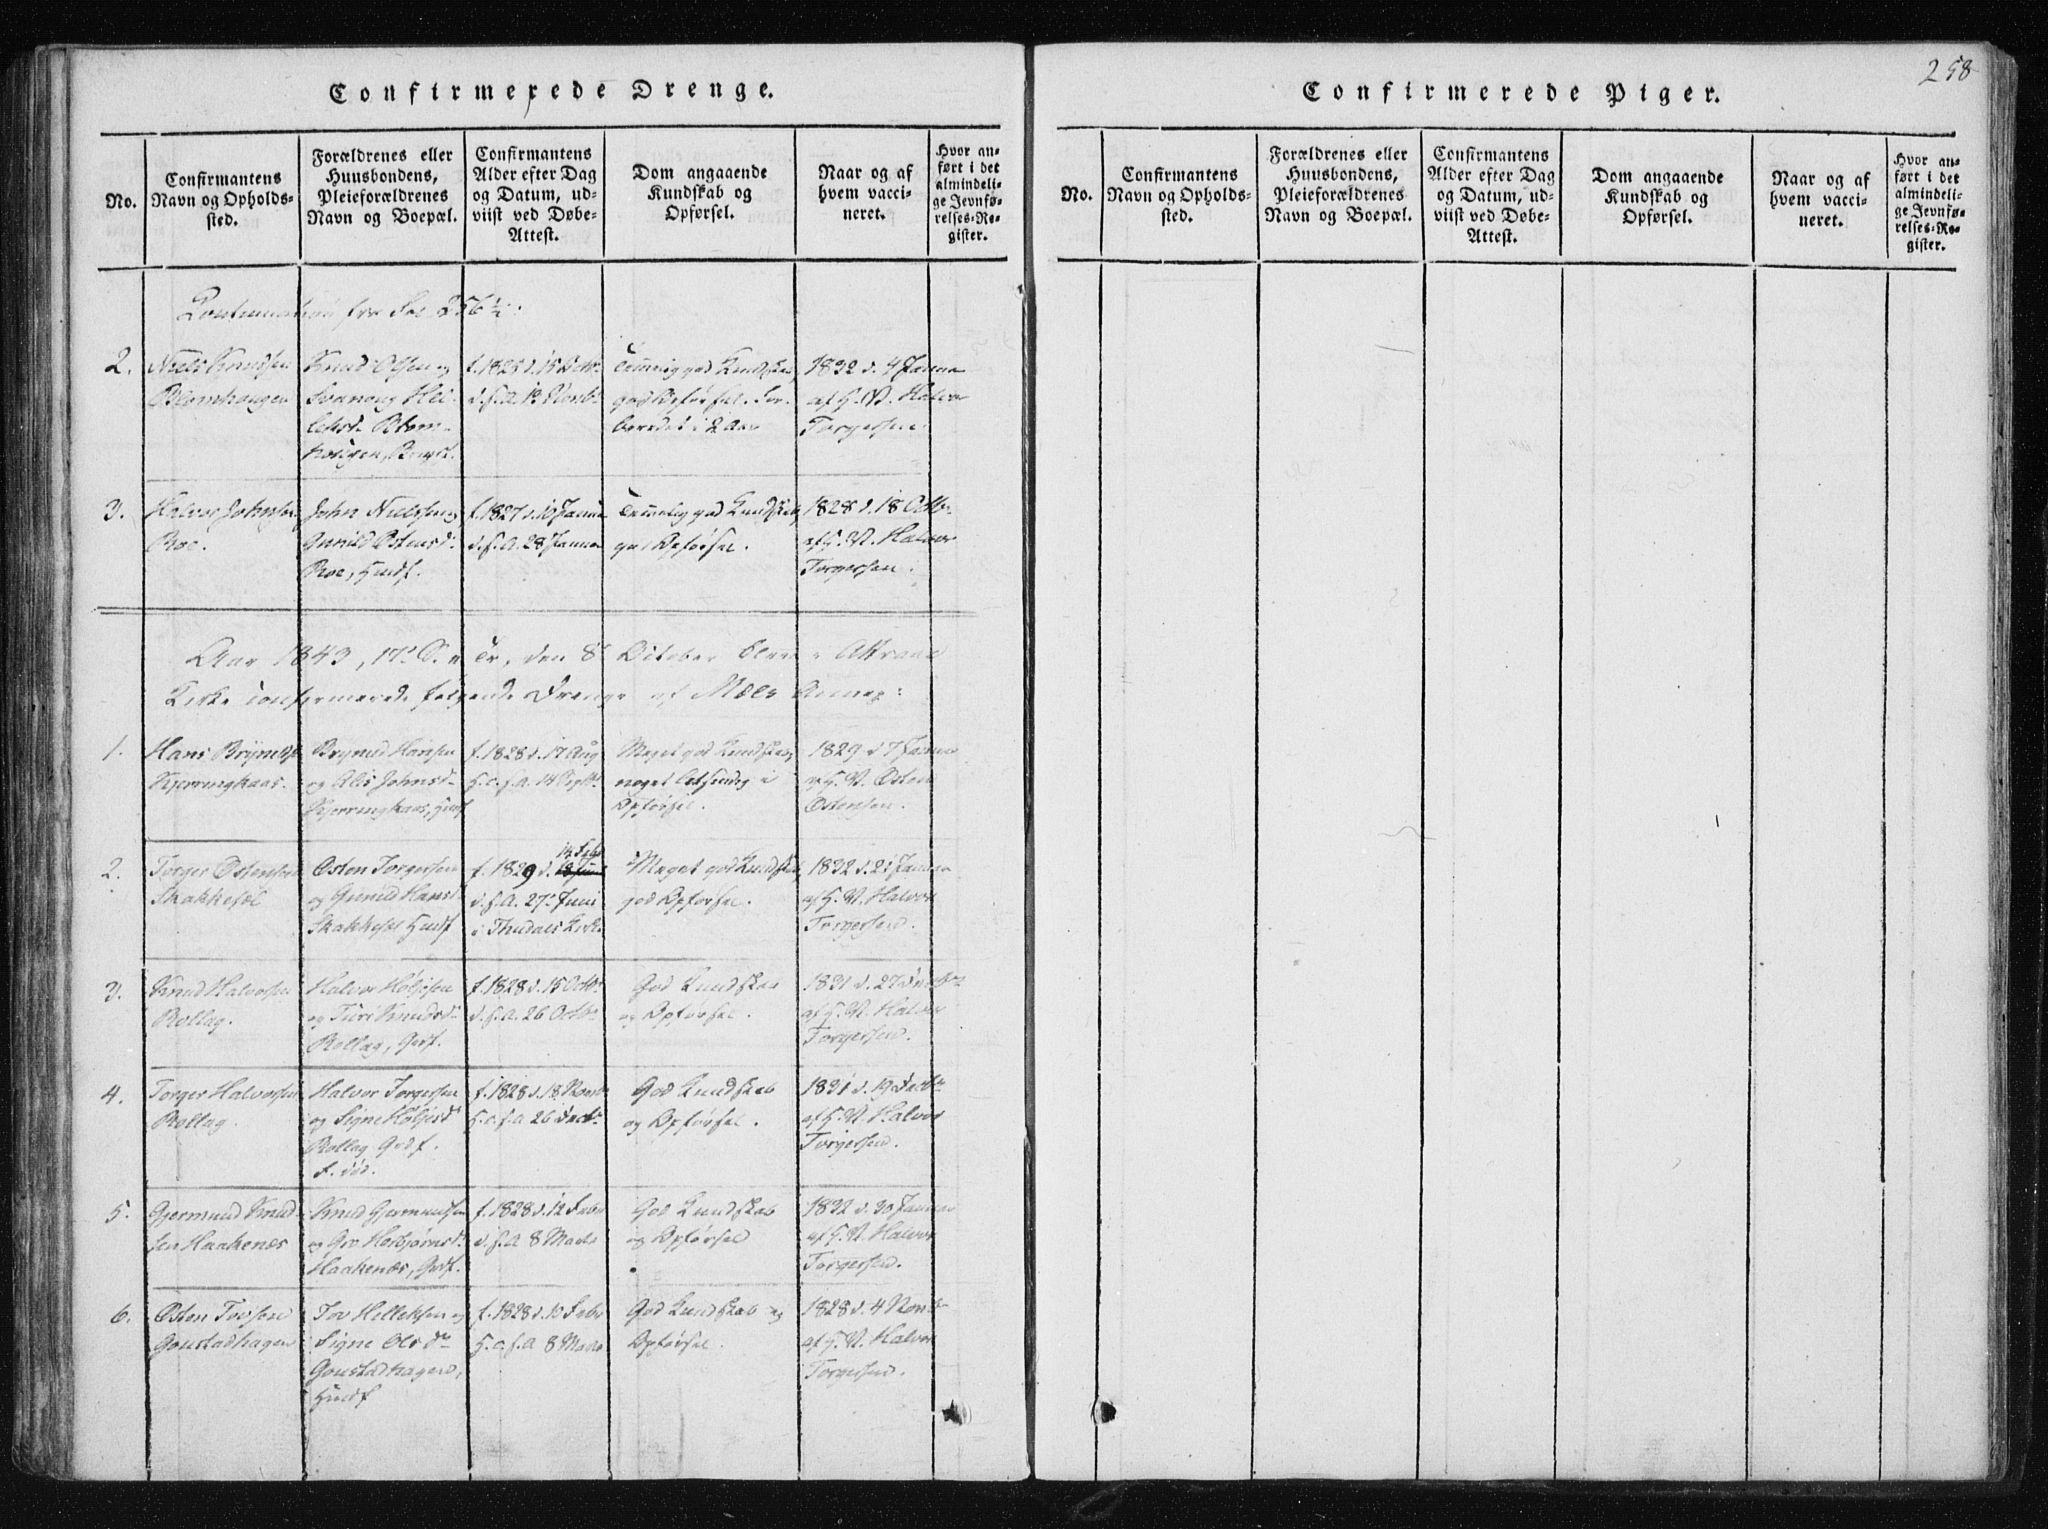 258
Confirmerede Drenge.
No.
Confirmantens
Navn og Opholds-
sted.
Forældrenes eller
Huusbondens,
Pleieforældrenes
Navn og Boepæl.
Confirmantens
Alder efter Dag
og Datum, ud-
viist ved Døbe-
Attest.
Dom angaaende
Kundskab og
Opførsel.
Naar og af
hvem vacci-
neret.
Hvor an-
ført i det
almindeli-
ge Jevnfø-
relses-Re-
gister.
Continuation fra Fol 256½:
2.
Niels Knudsen
Blomhaugen
Knud Olsen og
Hel-
leksd. Blom-
haugen,
f. 1825 d. 15 Octbr.
d. s. A. Novbr
Temmelig god Kundskab,
god Opførsel. For-
beredet i 2 Aar
1832 d. 4 Janua
af G. N. Halvor
Torgersen
3.
Halvor Johnsen
Roe.
John Nielsen og
Gunild Østensd.
Roe, Huusf.
f. 1827 d. 10 Janua
d. s. A. 28 Janua
Temmelig god Kundskab,
god Opførsel.
1828 d. 18 Octbr.
af G. N. Halvor
Torgersen.
Aar 1843, 17d. S. e Tr, den 8d October blev i Attraae
Kirke confirmerede følgende Drenge af Mæls Annex:
1.
Hans Brynulfs
Kjerringkaas.
Brynild Hansen
og Alis Johnsd.
Kjerringkaas, Huusf
f. 1828 d. 17 Aug
H. d. s. A. 14 Septbr.
Meget god Kundskab,
noget letsindig i
Opførsel.
1829 d 7 Janua
af G. N. Østen
Østensen.
2.
Torger Østensen
Skakkesæl
Østen Torgersen
og Gunild Hansd
Skakkesæl Huusf
14 Febr
f. 1829 d.
d. s. A. 27d Juni
i Thudals Kirke
Meget god Kundskab,
god Opførsel.
1832 d. 21 Janua
af G. N. Halvor
Torgersen.
3.
Knud Halvorsen
Rollag.
Halvor Høljesen
og Turi Knudsdr
Rollag, Grdf.
f. 1828 d. 15 Octbr
d. s. A. 26 Octbr
God Kundskab
og Opførsel.
1831 d. 27 Decbr
af G. N. Halvor
Torgersen.
4.
Torger Halvorsen
Rollag
Halvor Torgersen
og Signe Høljesdr
Rollag Grdf.
f. død.
f. 1828 d. 18 Novbr
H. d. s. A 26 Decbr.
God Kundskab
og Opførsel.
1831 d. 19 Decbr
af G. N. Halvor
Torgersen.
5.
Gjermund Knud-
sen Haakenæs
Knud Gjermundsen
og Gro Hoibjørnsd.
Haakenæs, Grdf.
f. 1828 d. 12 Febr
d. s. A 8 Marts
God Kundskab
og Opførsel
1832 d. 30 Janua
af G. N. Halvor
Torgersen.
6.
Østen Tovsen
Goustadhagen
Tov Helleksen og
Signe Olsdr
Goustadhagen,
Huusf
f. 1828 d. 10 Febr
H. d. s. A 8 Marts
God Kundskab og
Opførsel.
1828 d. 4 Novb
af G. N. Halvor
Torgersen.
Confirmerede Piger.
No.
Confirmantens
Navn og Opholds-
sted.
Forældrenes eller
Huusbondens,
Pleieforældrenes
Navn og Boepæl.
Confirmantens
Alder efter Dag
og Datum, ud-
viist ved Døbe-
Attest.
Dom angaaende
Kundskab og
Opførsel.
Naar og af
hvem vacci-
neret.
Hvor an-
ført i det
almindeli-
ge Jevnfø-
relses-Re-
gister.